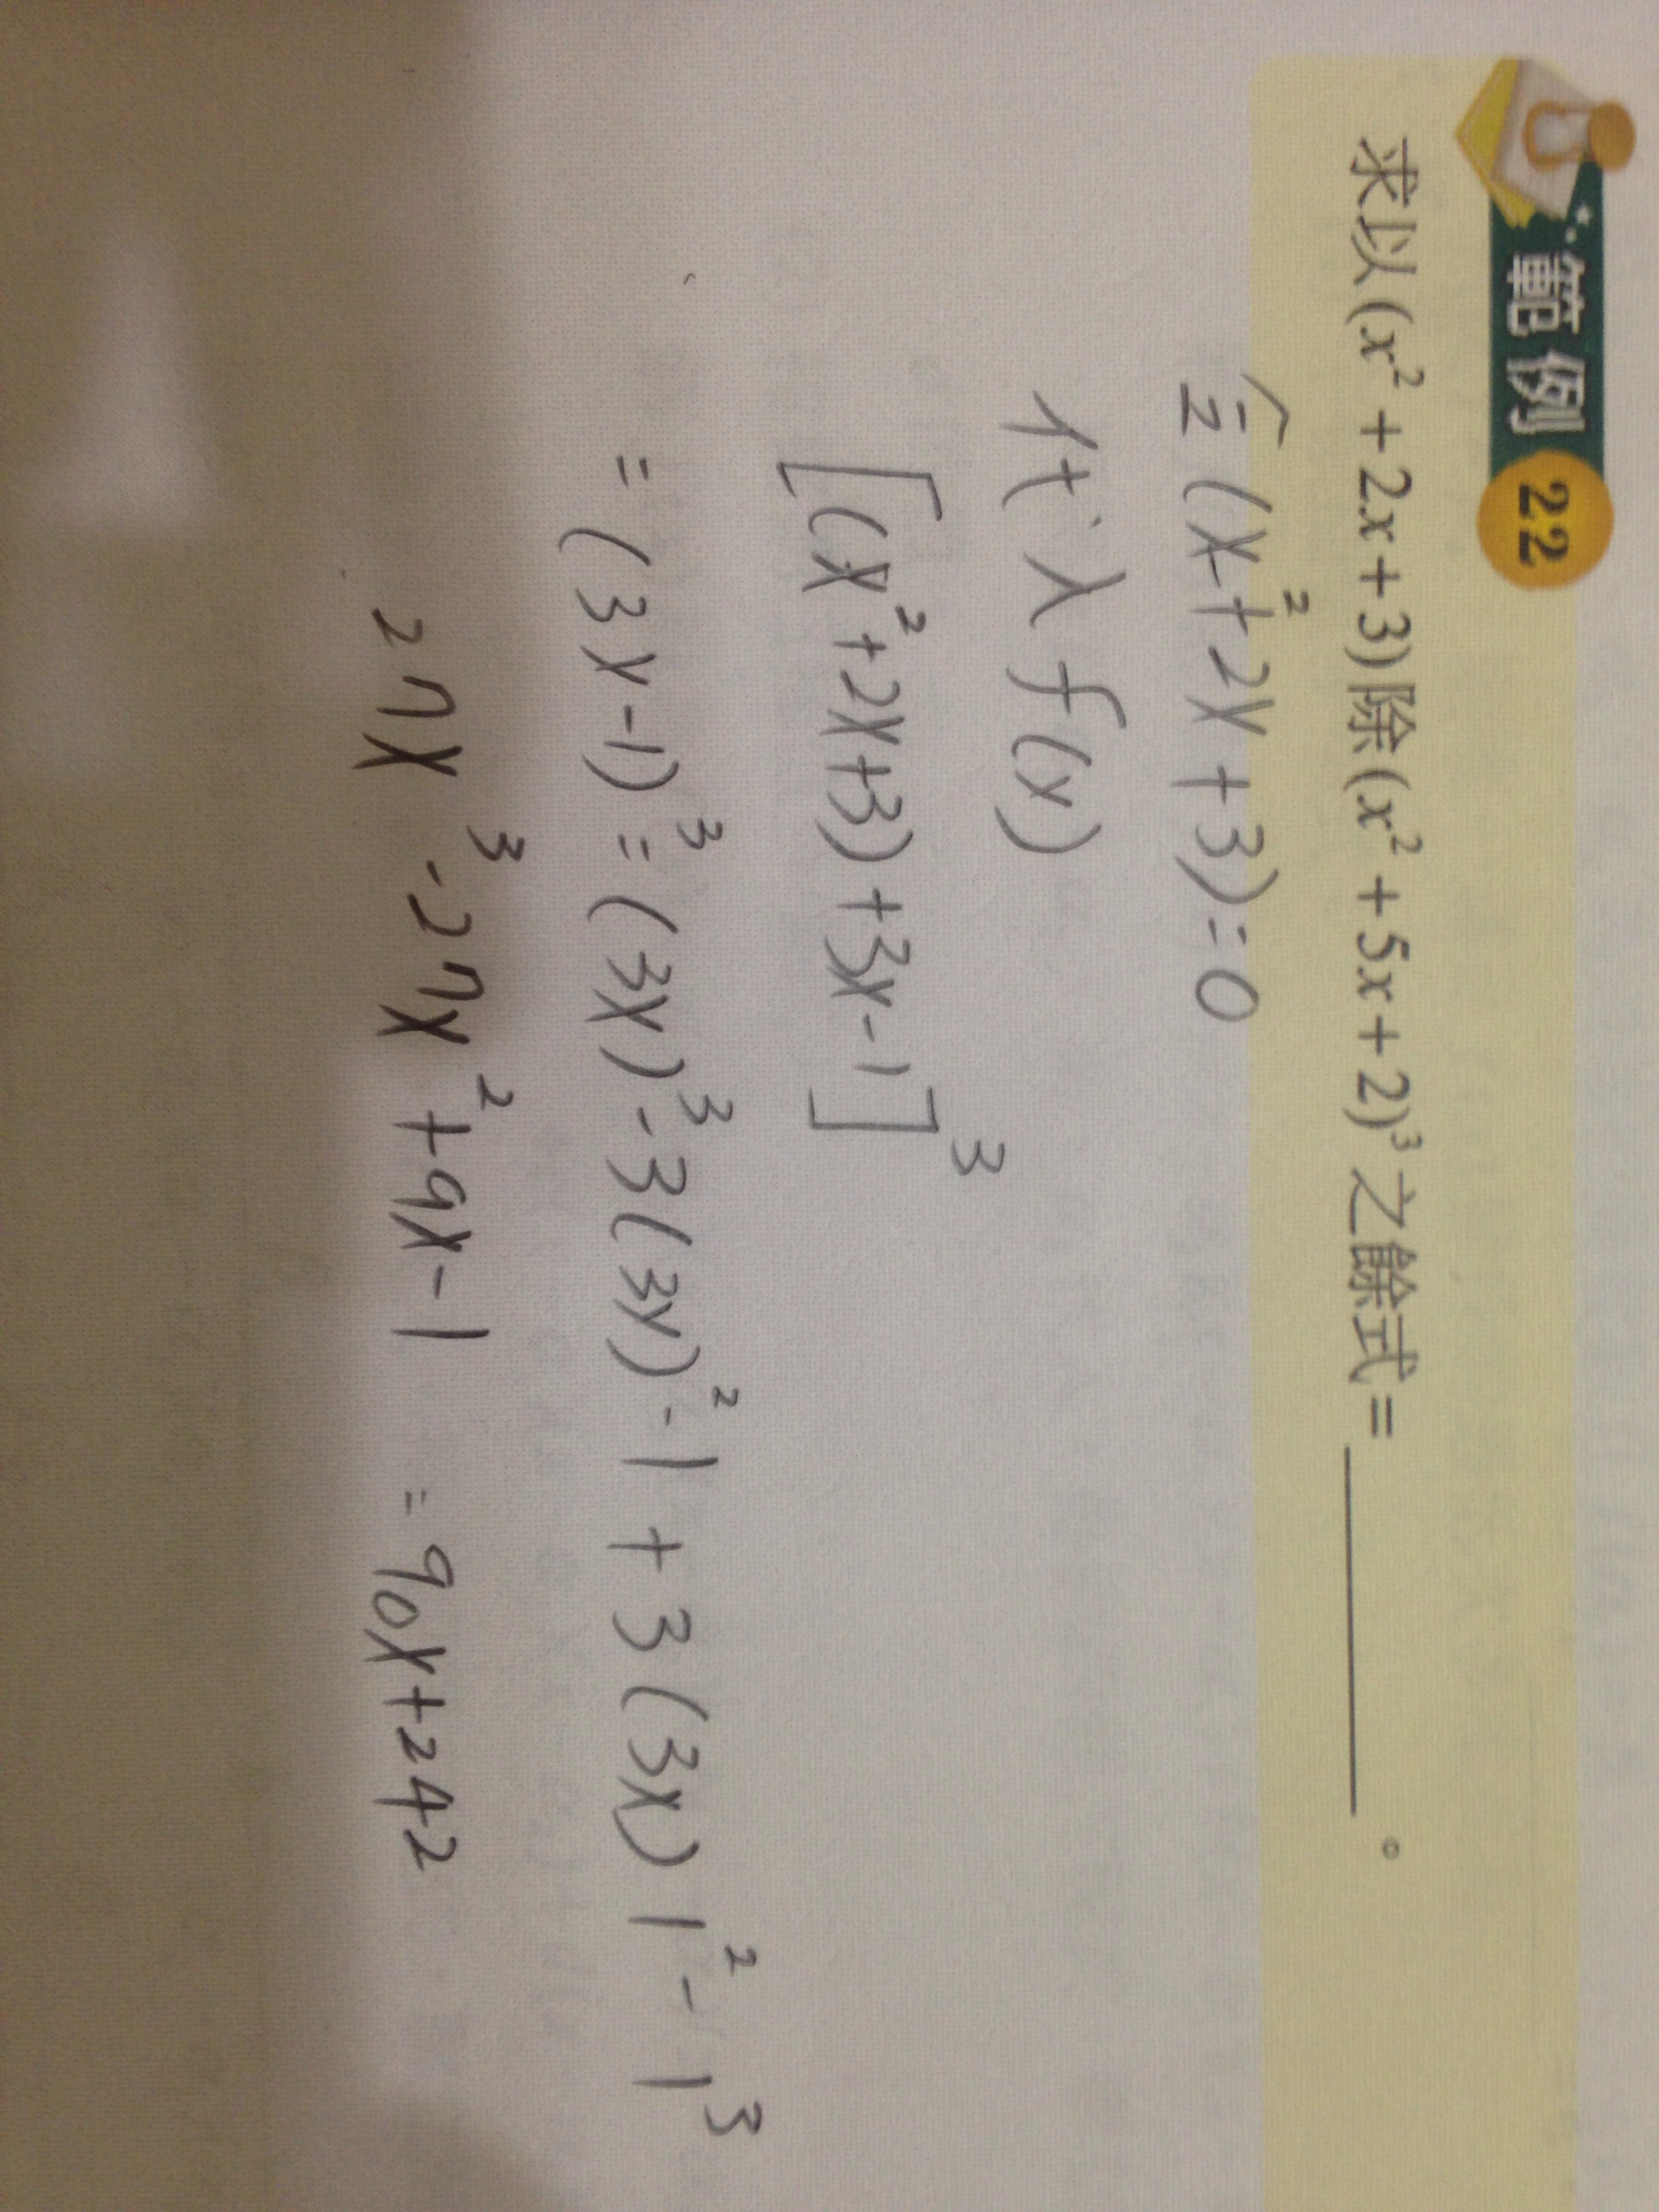 範例 22
求以(x²+2x+3)除(x²+5x+2)³之餘式=______。
令(x²+2x+3)=0
代入f(x)
[(x²+2x+3)+3x-1]³
=(3x-1)³=(3x)³-3(3x)²-1+3(3x)1²-1³
27x³-27x²+9x-1 =90x+242